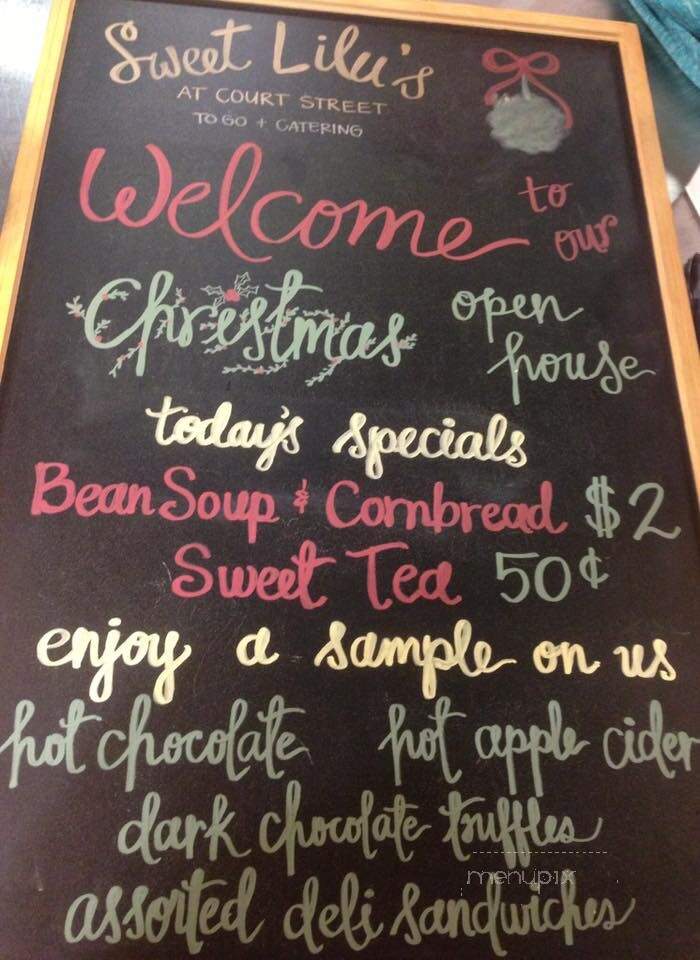 Sweet Lilu's
AT COURT STREET
TO GO + CATERING
Welcome to our
Christmas open house
today's specials
Bean Soup & Cornbread $2
Sweet Tea 50¢
enjoy a sample on us
hot chocolate hot apple cider
dark chocolate truffles
menupix
assorted deli sandwiches